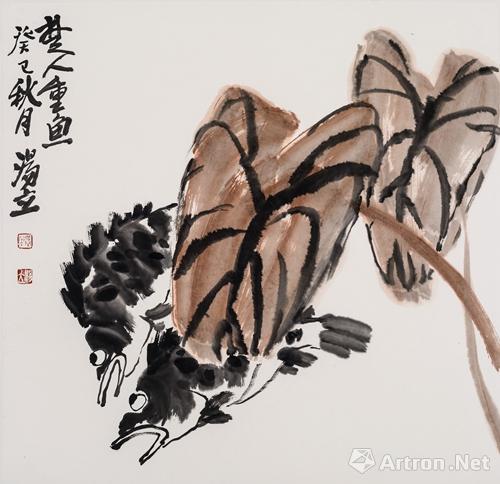 楚人重鱼
癸巳秋月 汤立
Artron.Net